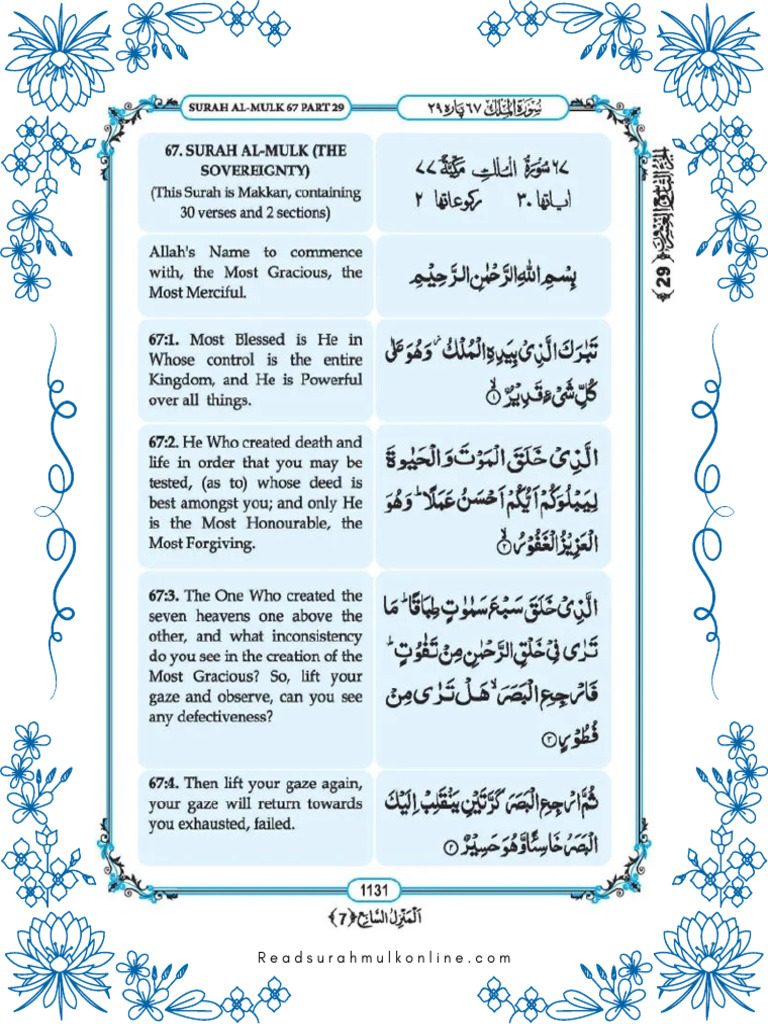 SURAH AL-MULK 67 PART 29
سُوْرَةُ الْمُلْكِ ٦٧ پاره ٢٩
67. SURAH AL-MULK (THE
SOVEREIGNTY)
(This Surah is Makkan, containing
30 verses and 2 sections)
٦٧ سُوْرَةُ الْمُلْكِ مَكِّيَّةٌ ٧٧
اٰیاتها ٣٠ رکوعاتها ٢
Allah's Name to commence
with, the Most Gracious, the
Most Merciful.
بِسْمِ اللّٰهِ الرَّحْمٰنِ الرَّحِیْمِ
67:1. Most Blessed is He in
Whose control is the entire
Kingdom, and He is Powerful
over all things.
تَبٰرَكَ الَّذِیْ بِیَدِهِ الْمُلْكُ ؗ وَهُوَ عَلٰی
كُلِّ شَیْءٍ قَدِیْرُ ۙ﴿۱﴾
67:2. He Who created death and
life in order that you may be
tested, (as to) whose deed is
best amongst you; and only He
is the Most Honourable, the
Most Forgiving.
الَّذِیْ خَلَقَ الْمَوْتَ وَالْحَیٰوةَ
لِیَبْلُوَكُمْ اَیُّكُمْ اَحْسَنُ عَمَلًا ؕ وَهُوَ
الْعَزِیْزُ الْغَفُوْرُ ۙ﴿۲﴾
67:3. The One Who created the
seven heavens one above the
other, and what inconsistency
do you see in the creation of the
Most Gracious? So, lift your
gaze and observe, can you see
any defectiveness?
الَّذِیْ خَلَقَ سَبْعَ سَمٰوٰتٍ طِبَاقًا ؕ مَا
تَرٰی فِیْ خَلْقِ الرَّحْمٰنِ مِنْ تَفٰوُتٍ ؕ
فَارْجِعِ الْبَصَرَ ۙ هَلْ تَرٰی مِنْ
فُطُوْرٍ ﴿۳﴾
67:4. Then lift your gaze again,
your gaze will return towards
you exhausted, failed.
ثُمَّ ارْجِعِ الْبَصَرَ كَرَّتَیْنِ یَنْقَلِبْ اِلَیْكَ
الْبَصَرُ خَاسِئًا وَّهُوَ حَسِیْرٌ ﴿۴﴾
﴿29﴾
1131
اَلْمَنْزِلُ السَّابِعُ ﴿7﴾
Readsurahmulkonline.com